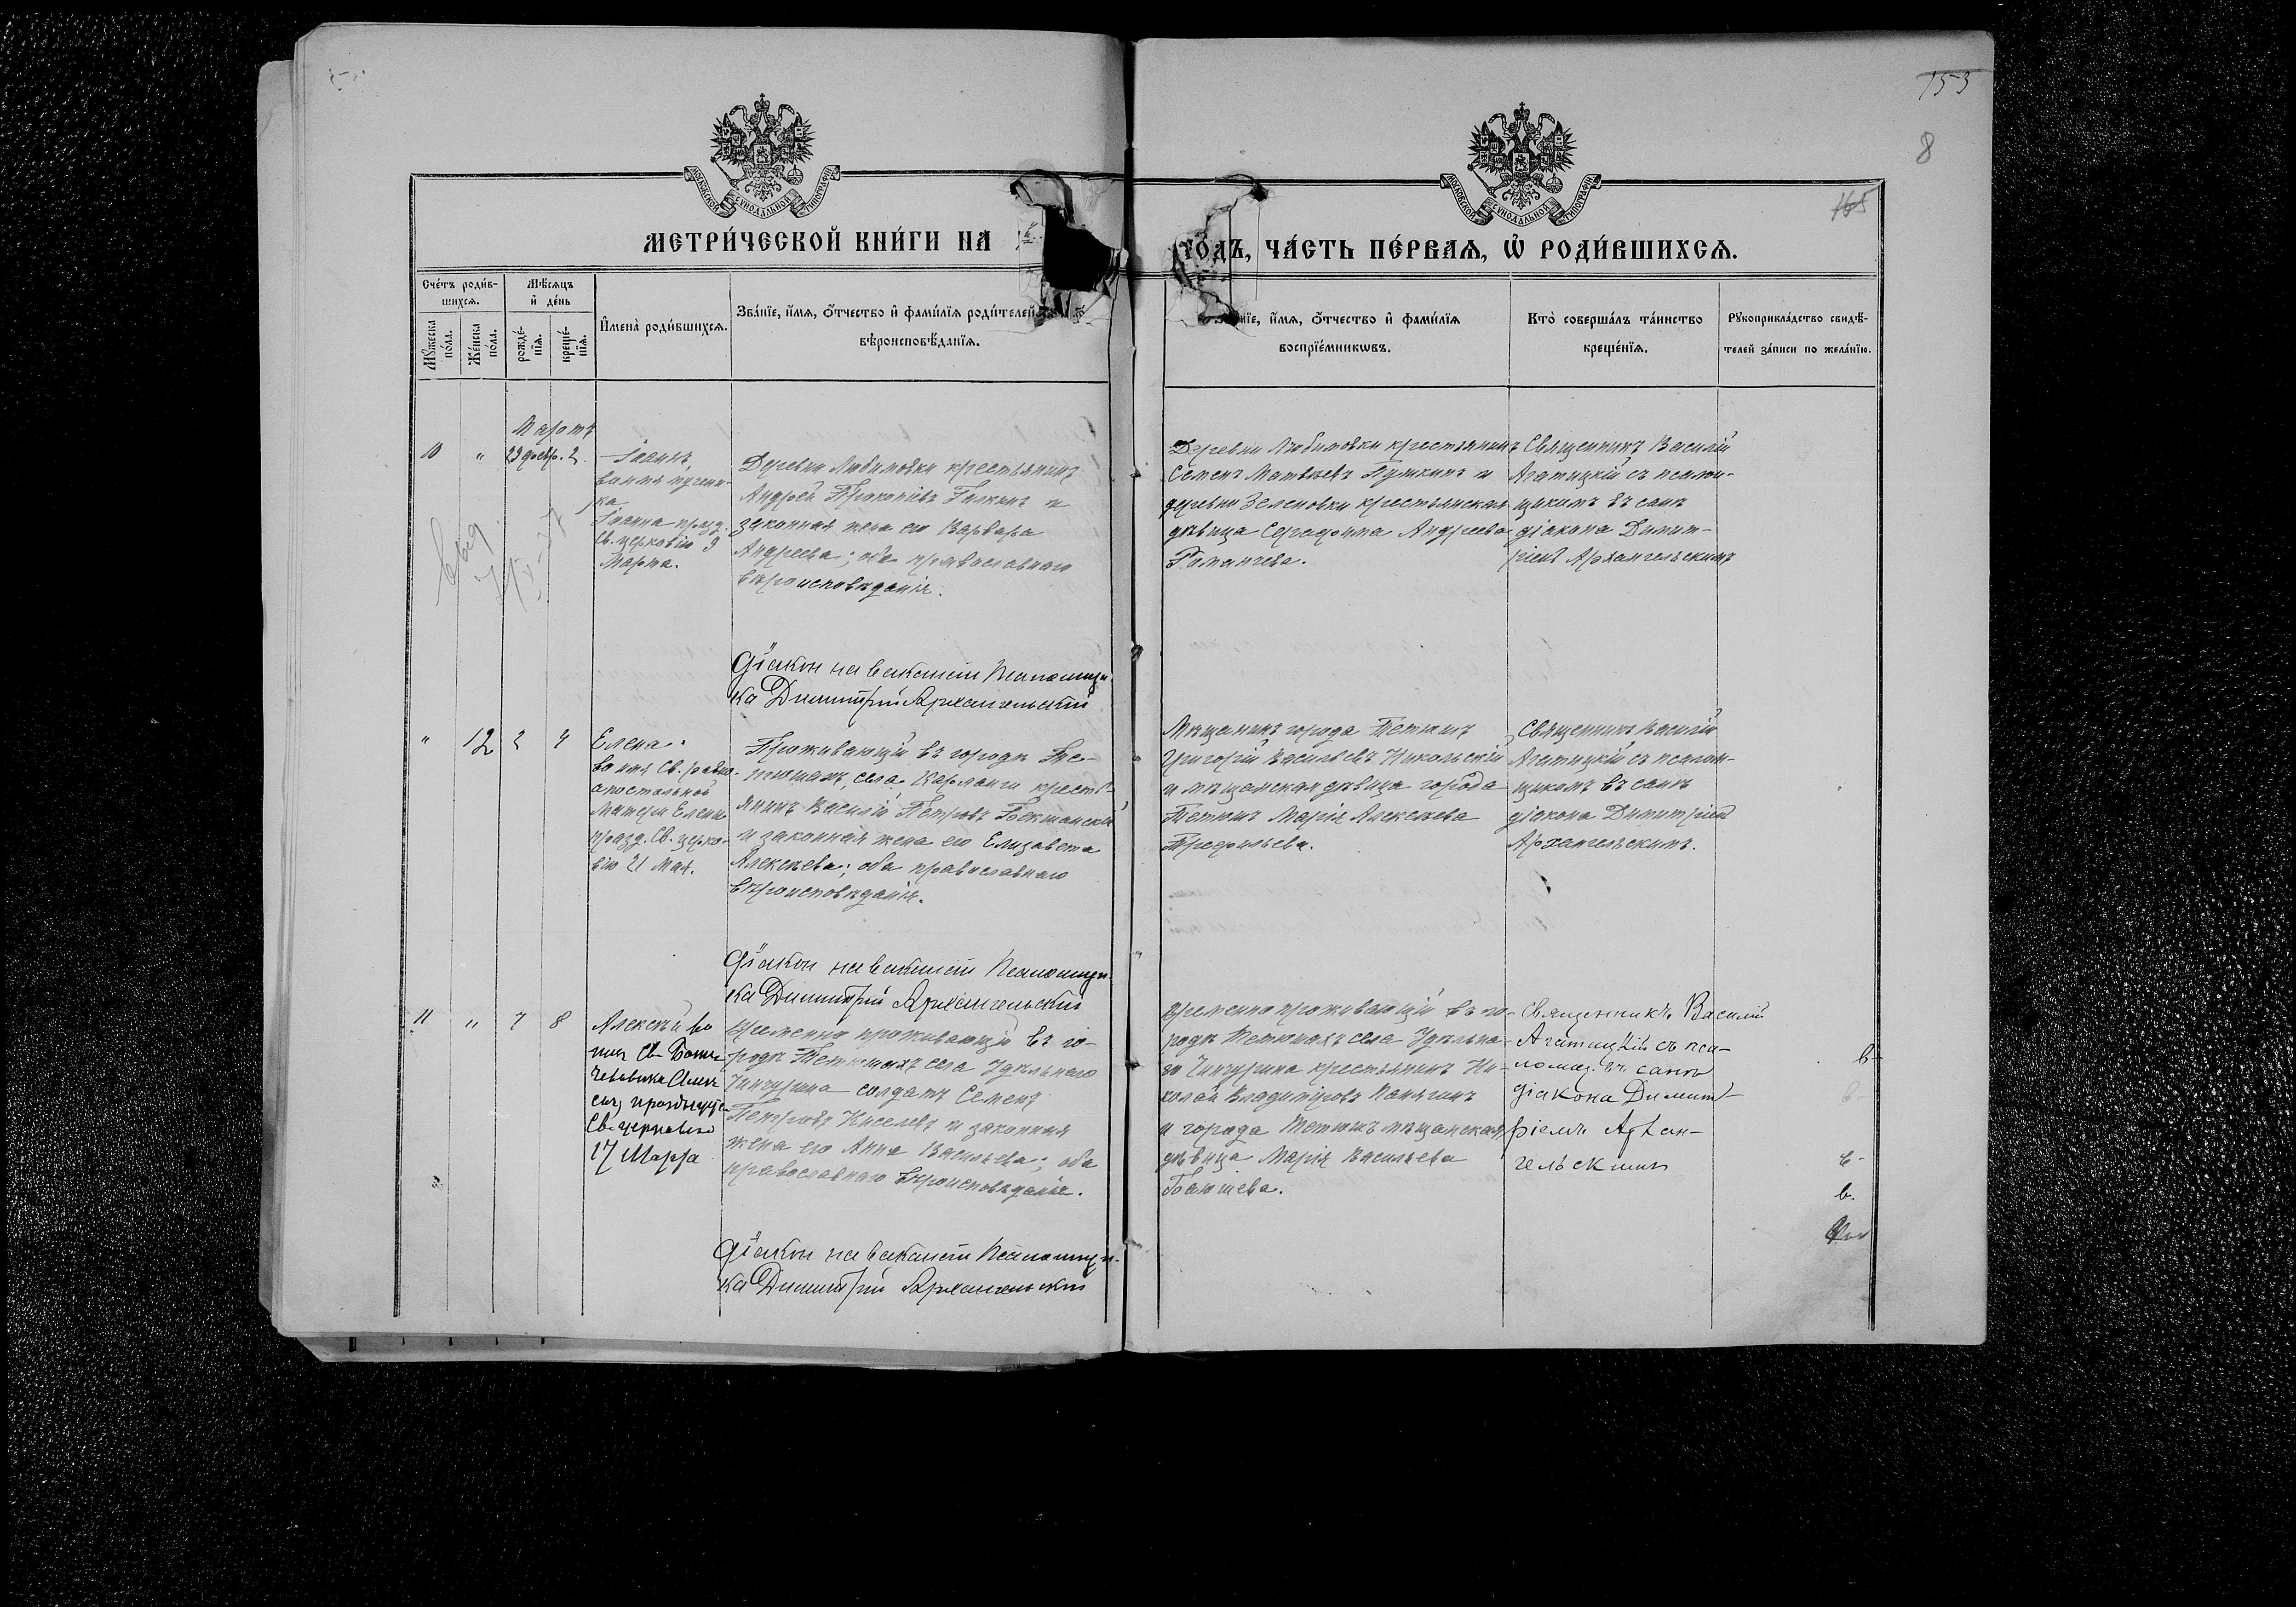 153
8
165
МОСКОВСКОЙ СѴНОДАЛЬНОЙ ТИПОГРАФІИ
МОСКОВСКОЙ СѴНОДАЛЬНОЙ ТИПОГРАФІИ
МЕТРИ́ЧЕСКОЙ КНИ́ГИ НА
ГО́ДЪ, ЧА́СТЬ ПЕ́РВАѦ, Ѡ҆ РОДИ́ВШИХСѦ.
Сче́тъ роди́в-
шихсѧ.
Мѣ́сѧцъ
и҆ де́нь
Мꙋ́жеска
по́ла.
Же́нска
по́ла.
рожде́-
нїѧ.
креще́-
нїѧ.
И҆мена̀ роди́вшихсѧ.
Зва́нїе, и҆́мѧ, ѻ҆́тчество и҆ фами́лїѧ роди́телей
вѣроисповѣ́данїѧ.
и҆́мѧ, ѻ҆́тчество и҆ фами́лїѧ
воспрїе́мникѡвъ.
Кто̀ соверша́лъ та́инство
креще́нїѧ.
Рꙋкоприкла́дство свидѣ́-
телей за́писи по жела́нїю.
Мартъ
10 " 29 февр. 2
Іоаннъ
во имя мучени-
ка
Іоанна празд.
Св. церковію 9
Марта.
Деревни Любимовки крестьянинъ
Андрей Прокопіевъ Галкинъ и
законная жена его Варвара
Андреева; оба православнаго
вѣроисповѣданія.
Деревни Любимовки крестьянинъ
Семенъ Матвѣевъ Пушкинъ и
деревни Зеленовки крестьянская
дѣвица Серафима Андреева
Романчева.
Священникъ Василій
Агатицкій съ псалом-
щикомъ въ санѣ
діакона Димит-
ріемъ Архангельскимъ
Діаконъ на вакансіи Псаломщи-
ка Димитрій Архангельскій
" 12 2 4
Елена.
во имя Св. равно-
апостольной
Матери Елены
празд. Св. церко-
вію 21 Мая.
Проживающій въ городѣ Те-
тюшахъ, села Кармалы крестья-
янинъ Василій Петровъ
и законная жена его Елизавета
Алексѣева; оба православнаго
вѣроисповѣданія.
Мѣщанинъ города Тетюшъ
Григорій Васильевъ Никольскій
и мѣщанская дѣвица города
Тетюшъ Марія Алексѣева
Священникъ Василій
Агатицкій съ псалом-
щикомъ въ санѣ
діакона Димитріемъ
Архангельскимъ.
Діаконъ на вакансіи Псаломщи-
ка Димитрій Архангельскій
11 " 7 8
Алексѣй во
имя Св. Божія
человѣка Алек-
сея, празднуе
Св. церковью
17 Марта
Временно проживающій въ го-
родѣ Тетюшахъ села Удѣльнаго
Чинчурина солдатъ Семенъ
Петровъ Киселевъ и законная
жена его Анна Васильева; оба
православнаго вѣроисповѣданія.
Временно проживающій въ го-
родѣ Тетюшахъ села Удѣльна-
го Чинчурина крестьянинъ Ни-
колай Владиміровъ
и города Тетюшъ мѣщанская
дѣвица Марія Васильева
Священникъ Василій
Агатицкій съ пса-
ломщ. въ санѣ
діакона Димит-
ріемъ Архан-
гельскимъ
Діаконъ на вакансіи Псаломщи-
ка Димитрій Архангельскій